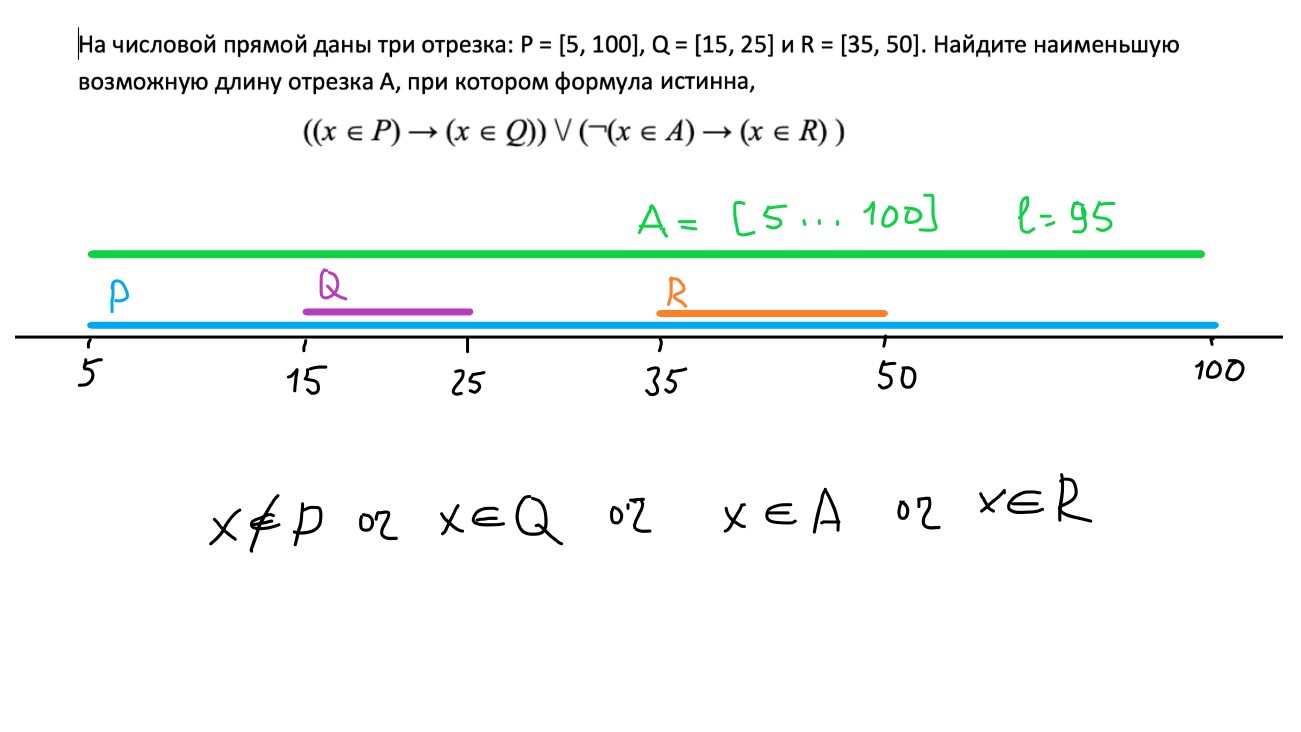 На числовой прямой даны три отрезка: P = [5, 100], Q = [15, 25] и R = [35, 50]. Найдите наименьшую
возможную длину отрезка A, при котором формула истинна,
((x ∈ P) → (x ∈ Q)) ∨ (¬(x ∈ A) → (x ∈ R) )
A = [5 ... 100] l = 95
P Q R
5 15 25 35 50 100
x ∉ P or x ∈ Q or x ∈ A or x ∈ R